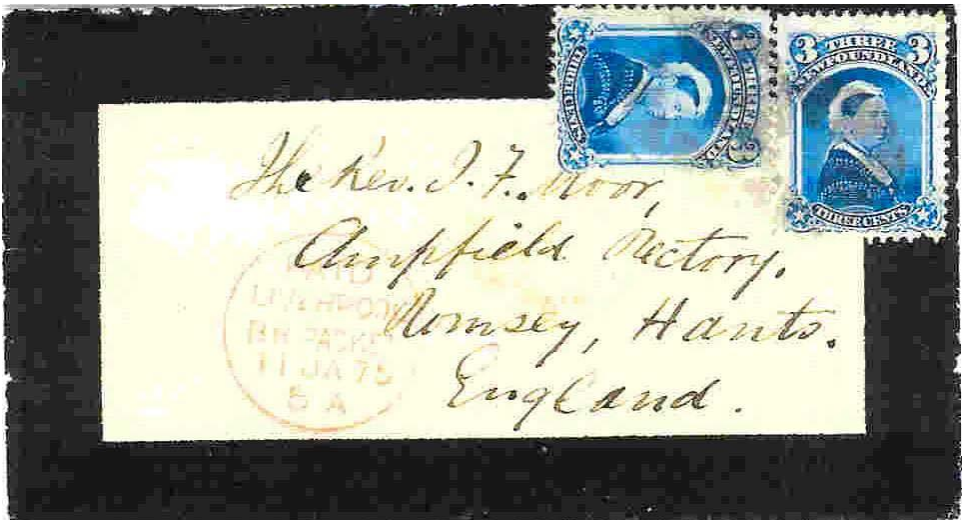 3 THREE 3
NEWFOUNDLAND
THREE CENTS
3 THREE 3
NEWFOUNDLAND
THREE CENTS
The Rev. J. F. Moor,
Ampfield Rectory,
Romsey, Hants.
England.
PAID
LIVERPOOL
BR PACKET
11 JA 75
5 A